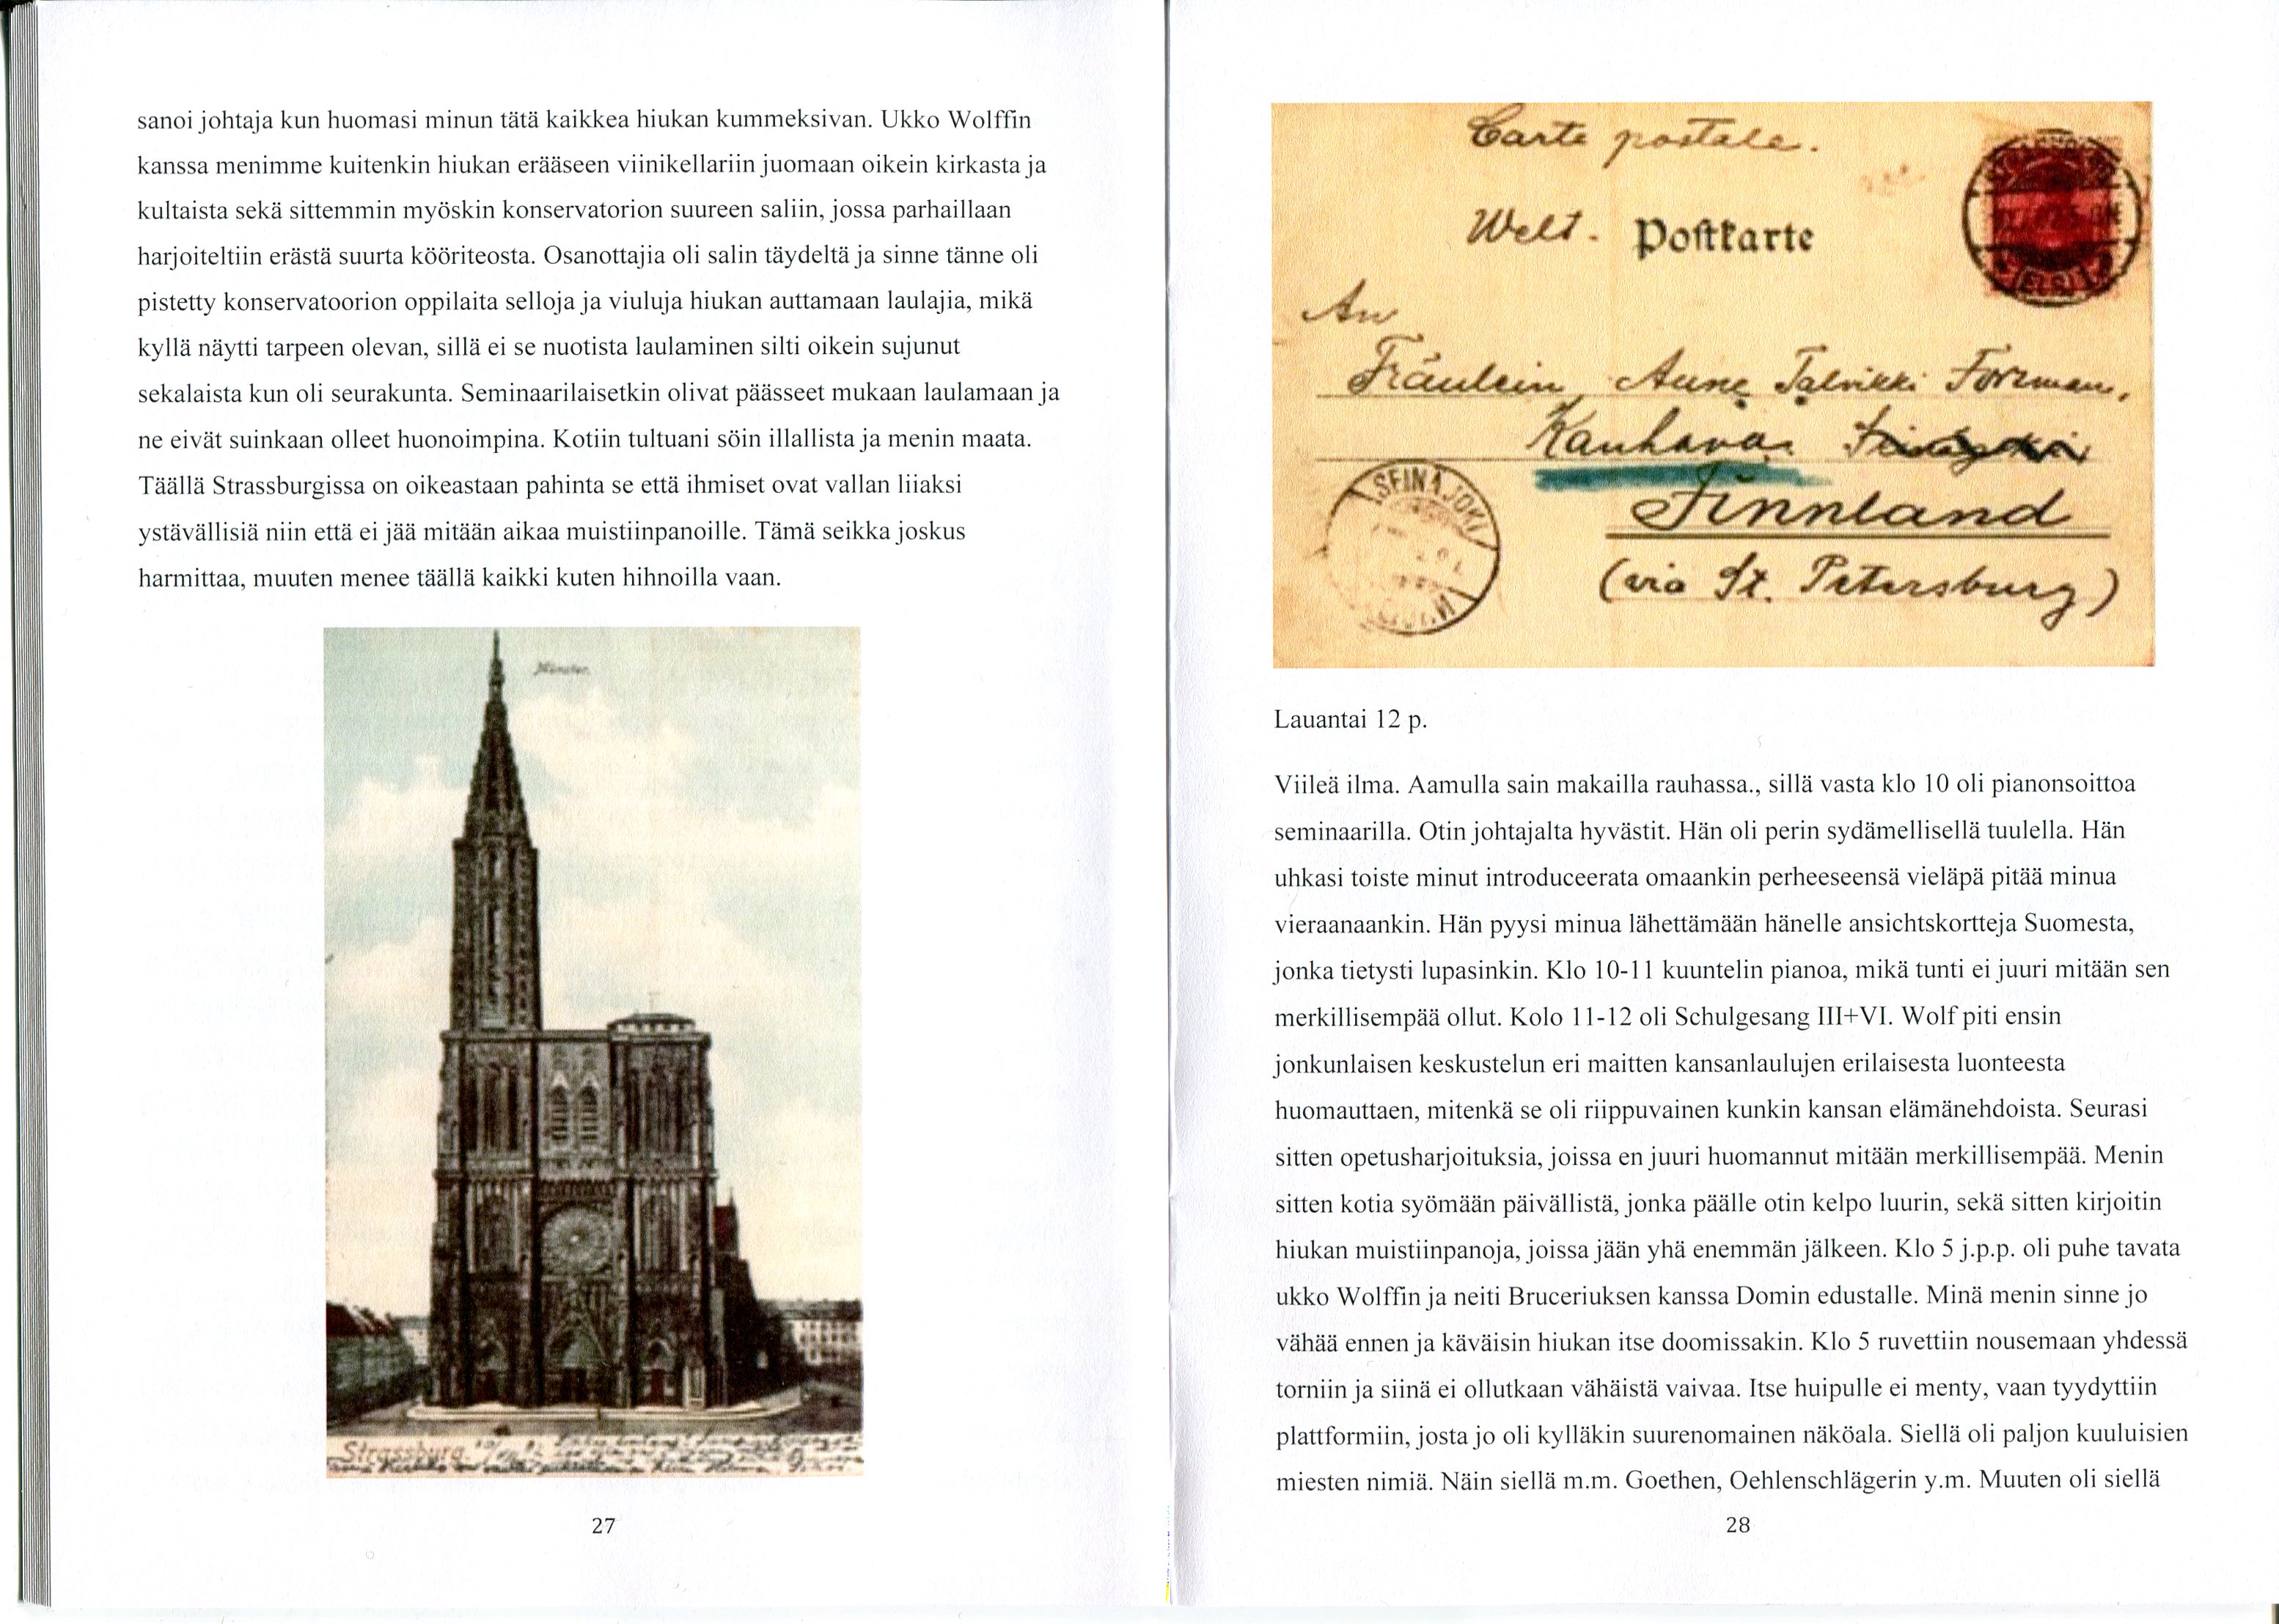 sanoi johtaja kun huomasi minun tätä kaikkea hiukan kummeksivan. Ukko Wolffin
kanssa menimme kuitenkin hiukan erääseen viinikellariin juomaan oikein kirkasta ja
kultaista sekä sittemmin myöskin konservatorion suureen saliin, jossa parhaillaan
harjoiteltiin erästä suurta kööriteosta. Osanottajia oli salin täydeltä ja sinne tänne oli
pistetty konservatoorion oppilaita selloja ja viuluja hiukan auttamaan laulajia, mikä
kyllä näytti tarpeen olevan, sillä ei se nuotista laulaminen silti oikein sujunut
sekalaista kun oli seurakunta. Seminaarilaisetkin olivat päässeet mukaan laulamaan ja
ne eivät suinkaan olleet huonoimpina. Kotiin tultuani söin illallista ja menin maata.
Täällä Strassburgissa on oikeastaan pahinta se että ihmiset ovat vallan liiaksi
ystävällisiä niin että ei jää mitään aikaa muistiinpanoille. Tämä seikka joskus
harmittaa, muuten menee täällä kaikki kuten hihnoilla vaan.
Münster.
Strassburg
27
Carte postale.
Welt - Postkarte
An
Fräulein Aune Talvikki Forsman,
Kauhava
Finnland
(via St. Petersburg)
SEINÄJOKI
Lauantai 12 p.
Viileä ilma. Aamulla sain makailla rauhassa., sillä vasta klo 10 oli pianonsoittoa
seminaarilla. Otin johtajalta hyvästit. Hän oli perin sydämellisellä tuulella. Hän
uhkasi toiste minut introduceerata omaankin perheeseensä vieläpä pitää minua
vieraanaankin. Hän pyysi minua lähettämään hänelle ansichtskortteja Suomesta,
jonka tietysti lupasinkin. Klo 10-11 kuuntelin pianoa, mikä tunti ei juuri mitään sen
merkillisempää ollut. Kolo 11-12 oli Schulgesang III+VI. Wolf piti ensin
jonkunlaisen keskustelun eri maitten kansanlaulujen erilaisesta luonteesta
huomauttaen, mitenkä se oli riippuvainen kunkin kansan elämänehdoista. Seurasi
sitten opetusharjoituksia, joissa en juuri huomannut mitään merkillisempää. Menin
sitten kotia syömään päivällistä, jonka päälle otin kelpo luurin, sekä sitten kirjoitin
hiukan muistiinpanoja, joissa jään yhä enemmän jälkeen. Klo 5 j.p.p. oli puhe tavata
ukko Wolffin ja neiti Bruceriuksen kanssa Domin edustalle. Minä menin sinne jo
vähää ennen ja käväisin hiukan itse doomissakin. Klo 5 ruvettiin nousemaan yhdessä
torniin ja siinä ei ollutkaan vähäistä vaivaa. Itse huipulle ei menty, vaan tyydyttiin
plattformiin, josta jo oli kylläkin suurenomainen näköala. Siellä oli paljon kuuluisien
miesten nimiä. Näin siellä m.m. Goethen, Oehlenschlägerin y.m. Muuten oli siellä
28